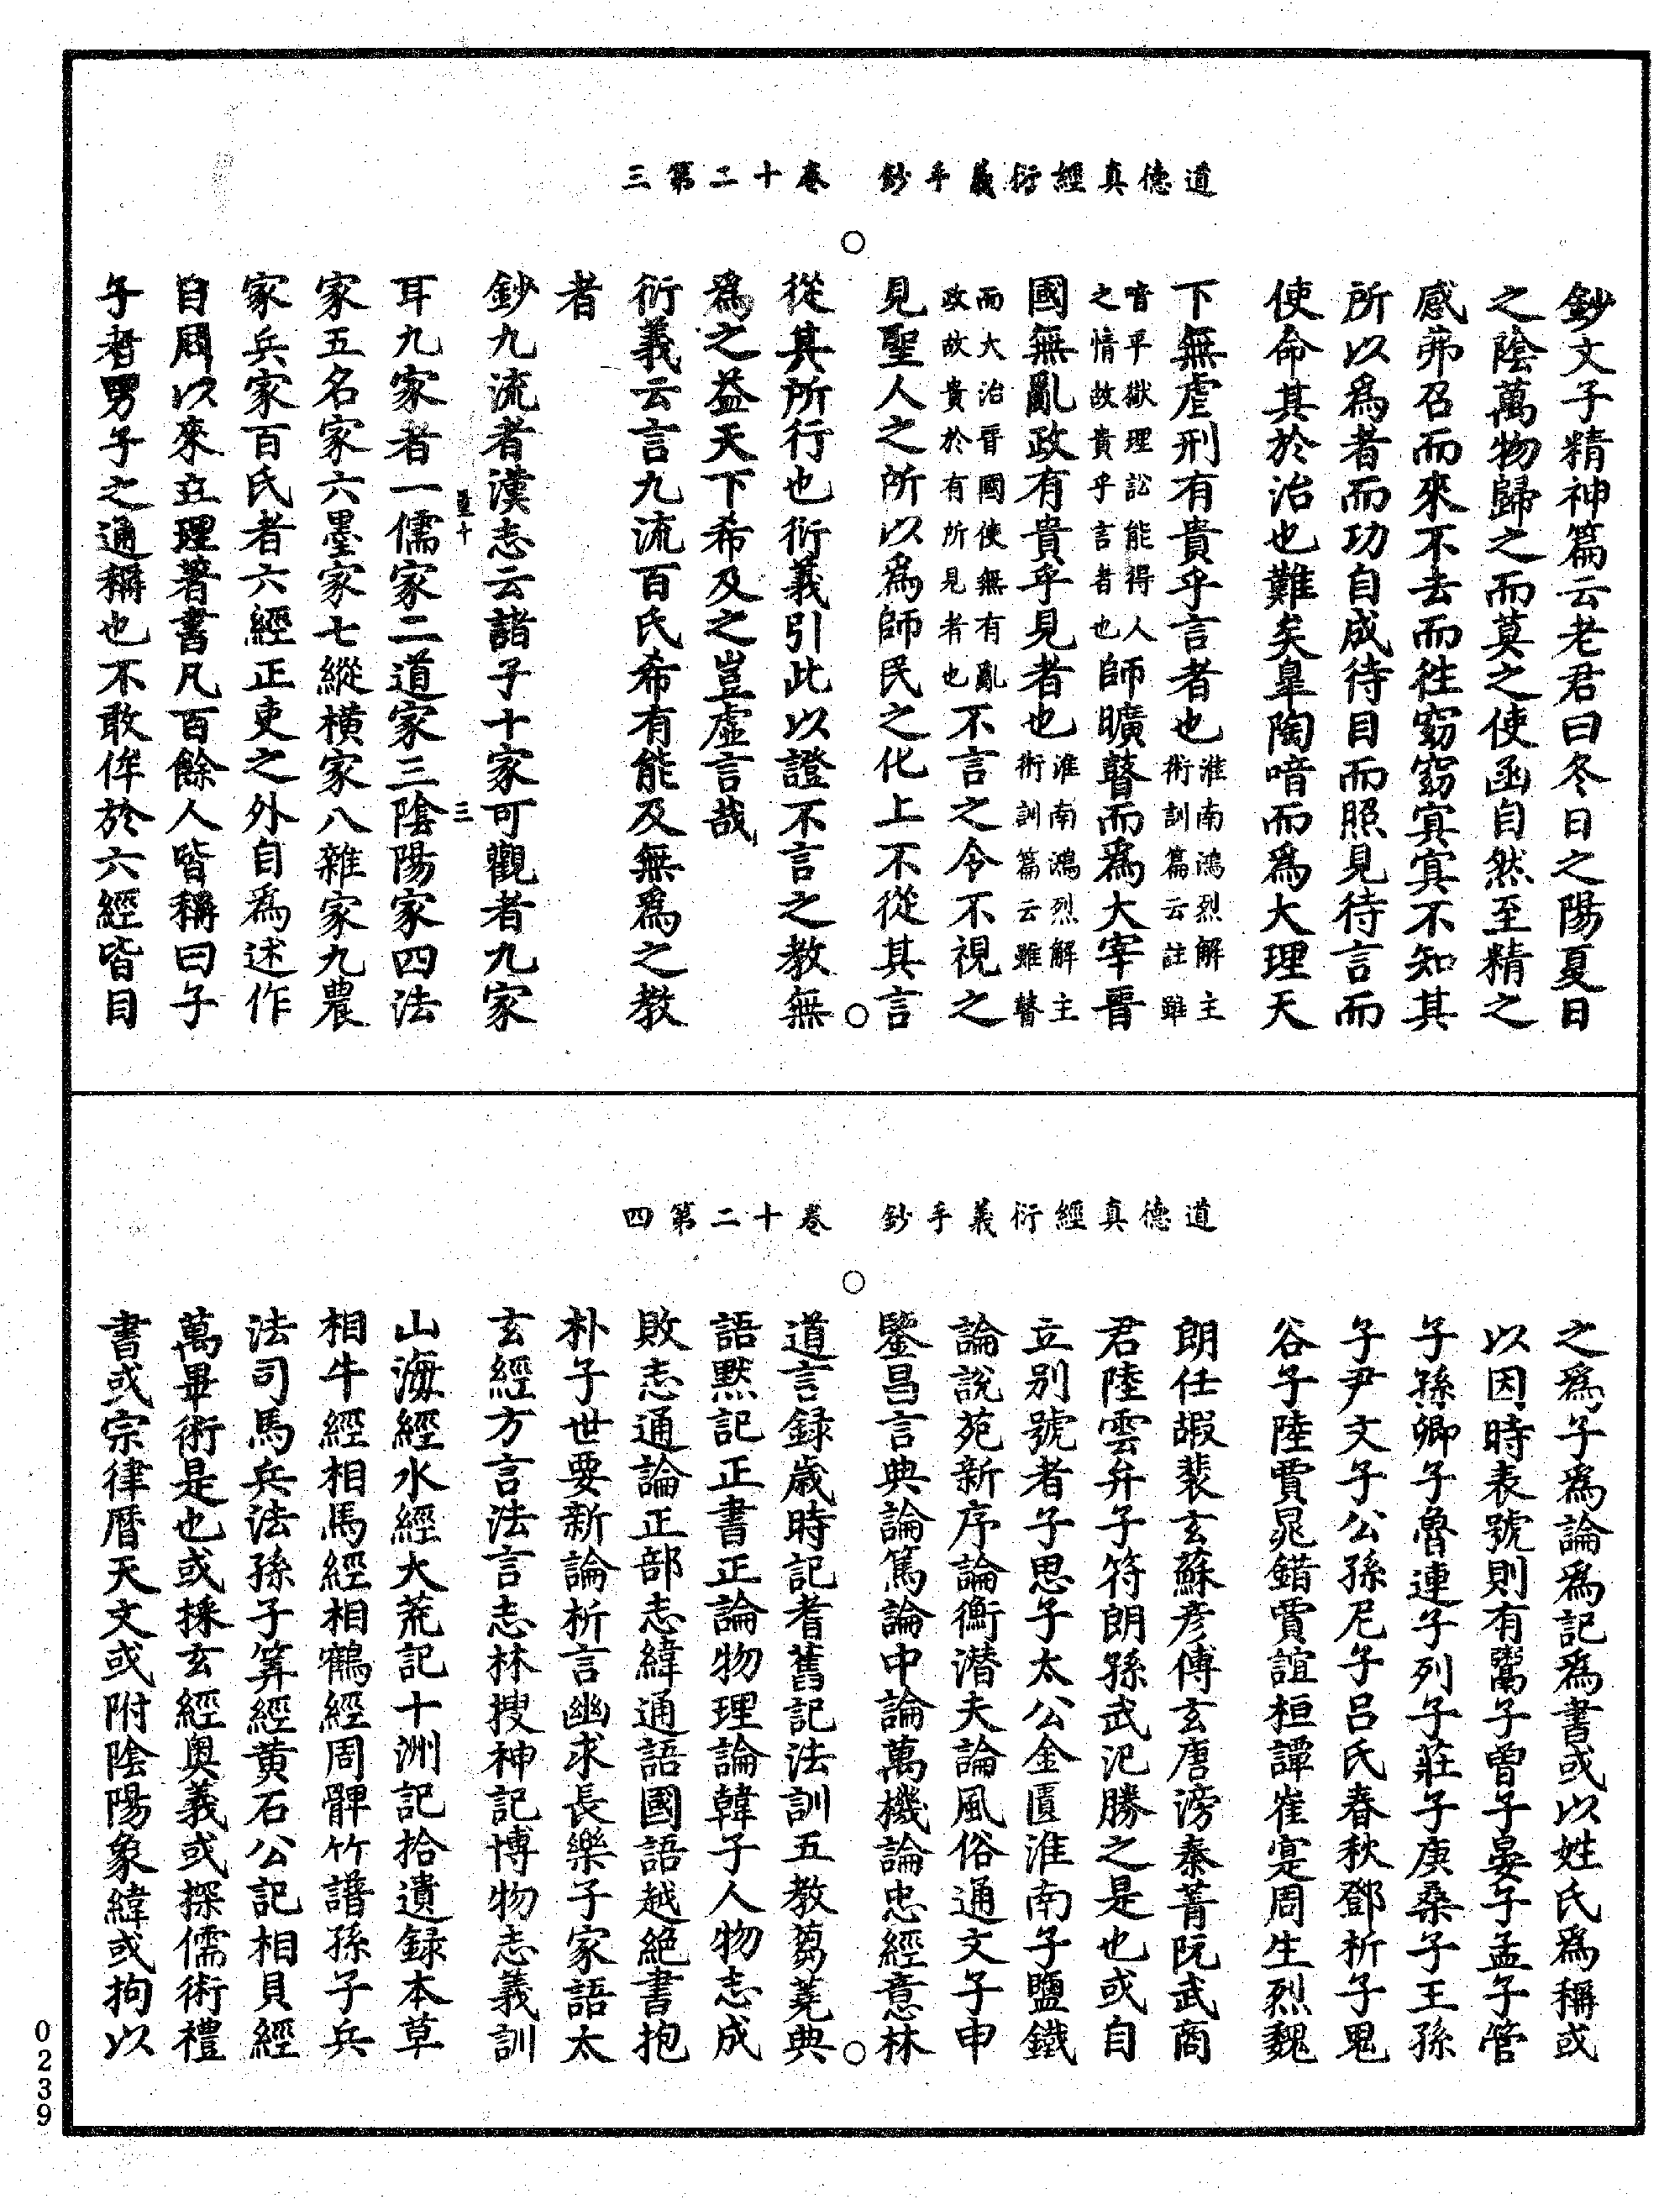 道德真經衍義手鈔　卷十二第三
鈔文子精神篇云老君曰冬日之陽夏日
之陰萬物歸之而莫之使函自然至精之
感弗召而來不去而往窈窈冥冥不知其
所以為者而功自成待目而照見待言而
使命其於治也難矣皐陶喑而為大理天
下無虐刑有貴乎言者也淮南鴻烈解主術訓篇云註雖
喑平獄理訟能得人之情故貴乎言者也師曠瞽而為大宰晉
國無亂政有貴乎見者也淮南鴻烈解主術訓篇云雖瞽
而大治晉國使無有亂政故貴於有所見者也不言之令不視之
見聖人之所以為師民之化上不從其言
從其所行也衍義引此以證不言之教無
為之益天下希及之豈虛言哉
衍義云言九流百氏希有能及無為之教
者
鈔九流者漢志云諸子十家可觀者九家
耳九家者一儒家二道家三陰陽家四法
家五名家六墨家七縱橫家八雜家九農
家兵家百氏者六經正史之外自為述作
自周以來立理著書凡百餘人皆稱曰子
子者男子之通稱也不敢侔於六經皆目
三
道德真經衍義手鈔　卷十二第四
之為子為論為記為書或以姓氏為稱或
以因時表號則有鬻子曾子晏子孟子管
子孫卿子魯連子列子莊子庚桑子王孫
子尹文子公孫尼子呂氏春秋鄧析子鬼
谷子陸賈晁錯賈誼桓譚崔寔周生烈魏
朗任嘏裴玄蘇彥傅玄唐滂秦菁阮武商
君陸雲弁子符朗孫武氾勝之是也或自
立別號者子思子太公金匱淮南子鹽鐵
論說苑新序論衡潛夫論風俗通文子申
鑒昌言典論篤論中論萬機論忠經意林
道言録歲時記耆舊記法訓五教蒭蕘典
語默記正書正論物理論韓子人物志成
敗志通論正部志緯通語國語越絕書抱
朴子世要新論析言幽求長樂子家語太
玄經方言法言志林搜神記博物志義訓
山海經水經大荒記十洲記拾遺録本草
相牛經相馬經相鶴經周髀竹譜孫子兵
法司馬兵法孫子筭經黃石公記相貝經
萬畢術是也或採玄經奧義或探儒術禮
書或宗律曆天文或附陰陽象緯或拘以
0239